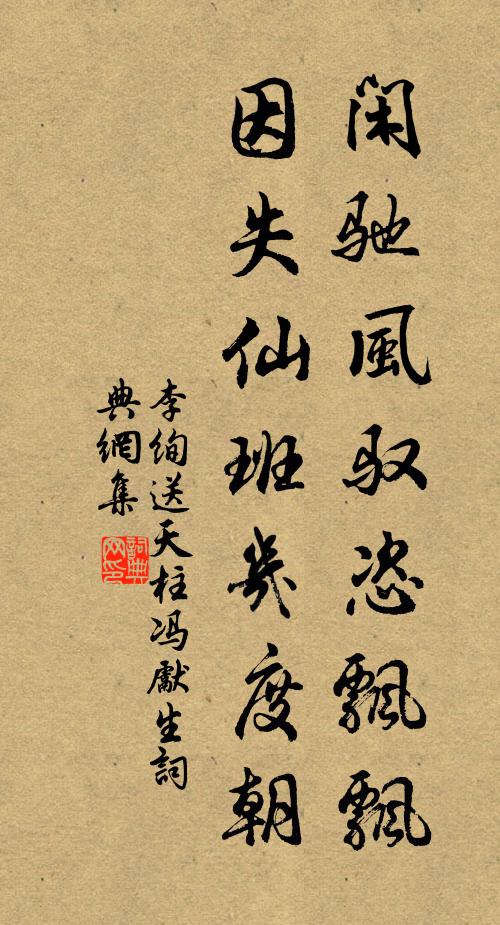 闲驰風驭恣飄飄
因失仙班几度朝
李絢送天柱冯獻生詞
典網集
詞典
网印